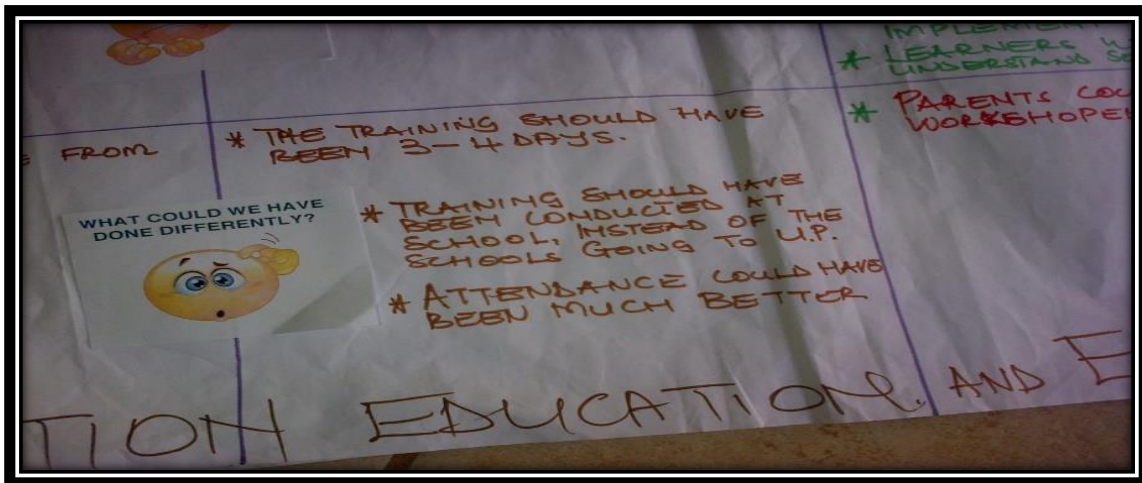 FROM
* THE TRAINING SHOULD HAVE
BEEN 3-4 DAYS.
WHAT COULD WE HAVE
DONE DIFFERENTLY?
* TRAINING SHOULD HAVE
BEEN CONDUCTED AT
SCHOOL, INSTEAD OF THE
SCHOOLS GOING TO U.P.
* ATTENDANCE COULD HAVE
BEEN MUCH BETTER
* LEARNERS
UNDERSTAND
* PARENTS
TION EDUCATION. AND E